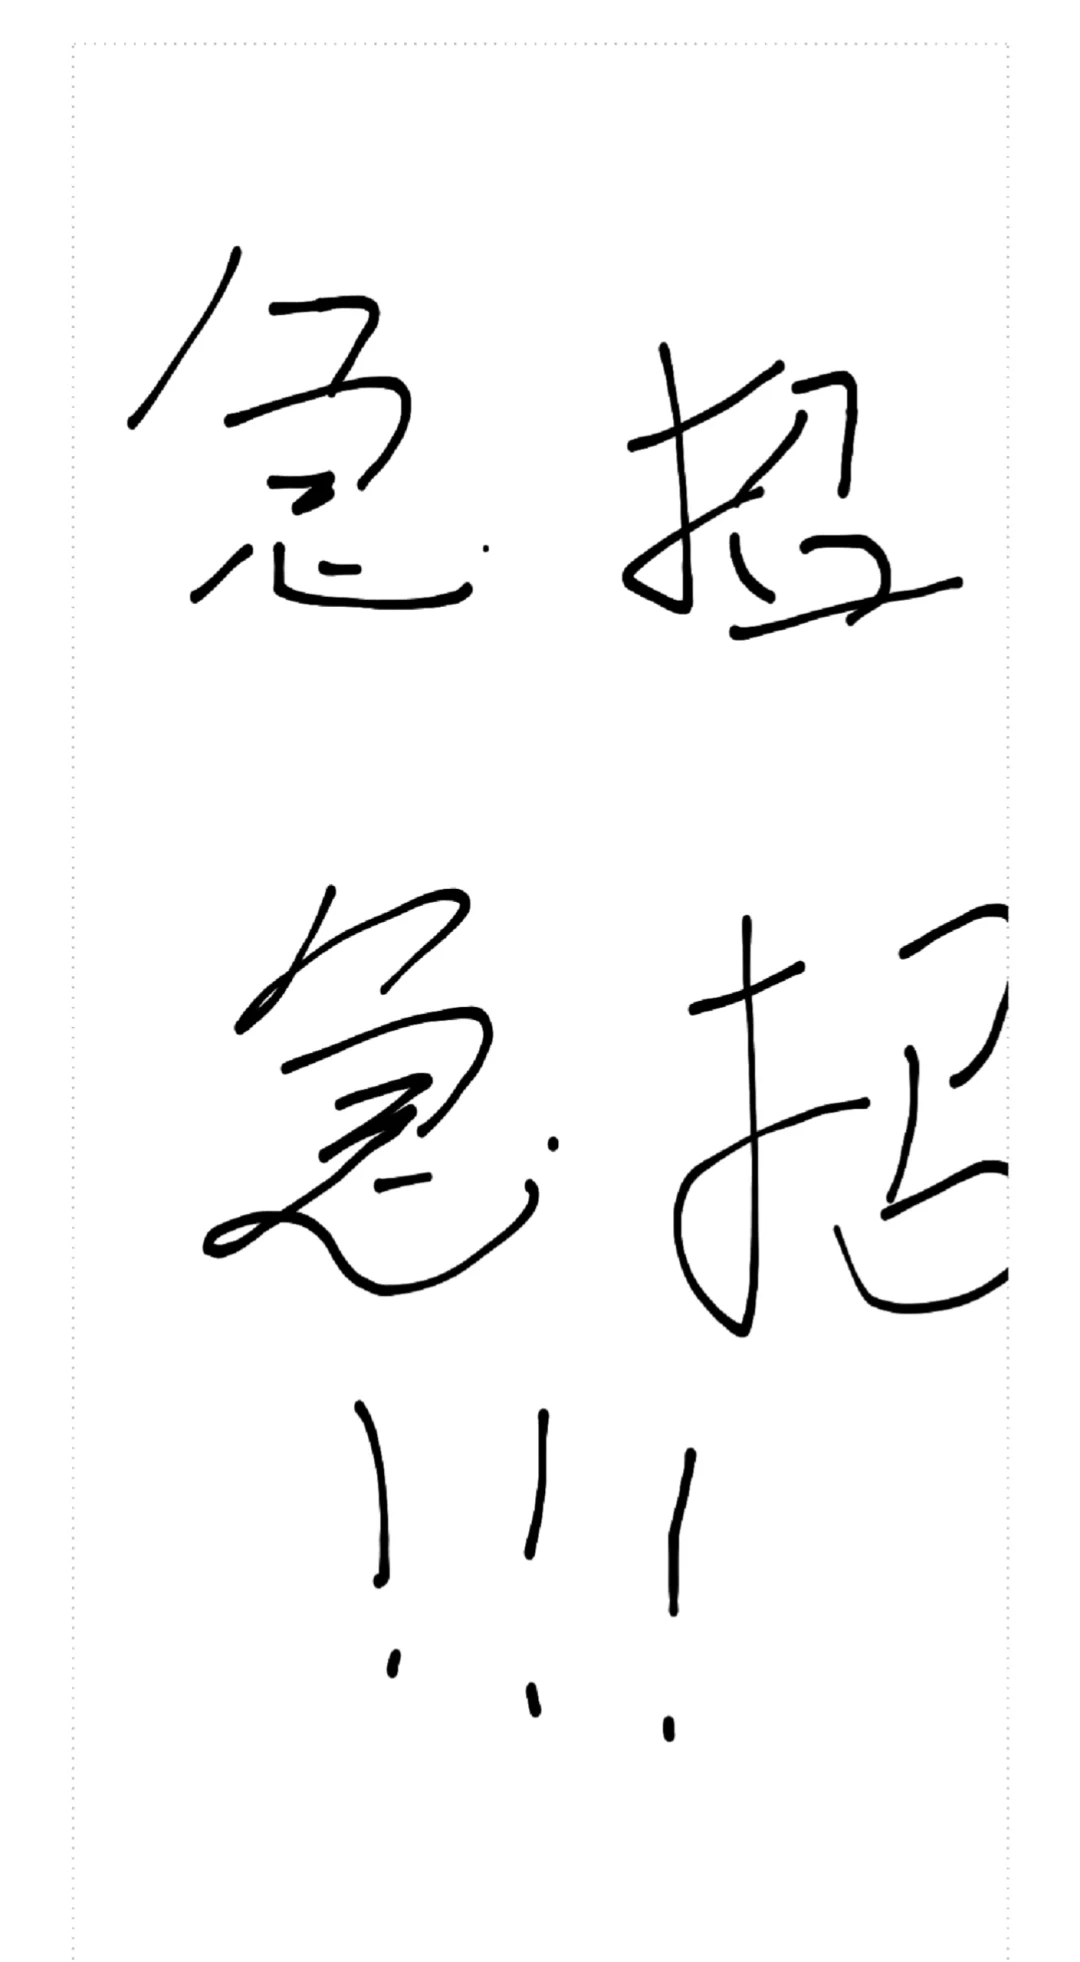 急招
急招
!!!